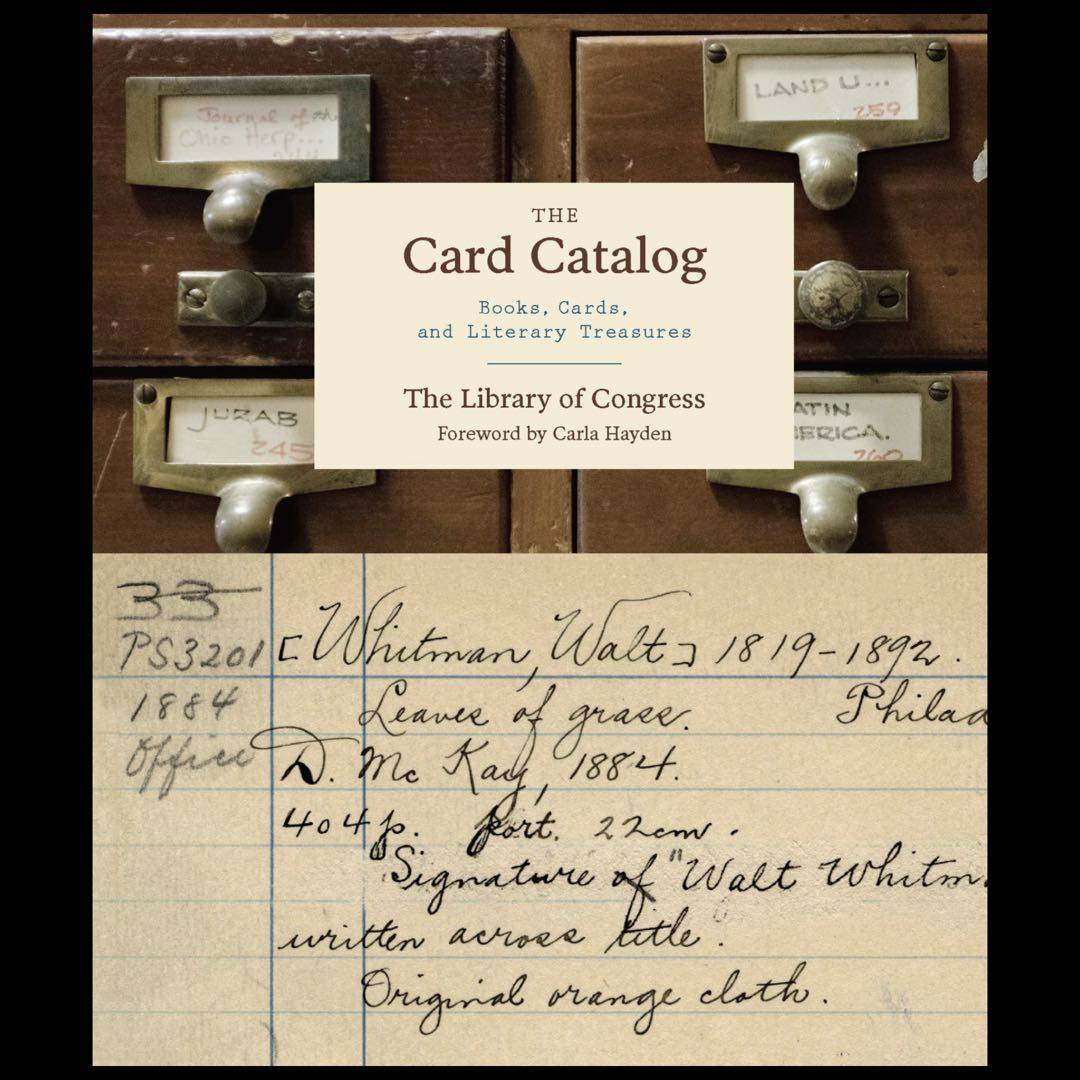 Journal of the
Ohio Herp...
LAND U...
259
THE
Card Catalog
Books, Cards,
and Literary Treasures
The Library of Congress
Foreword by Carla Hayden
JUZAB
245
ATIN
ERICA.
260
33
PS3201
1884
Office
[Whitman, Walt] 1819-1892.
Leaves of grass. Philad
D. McKay, 1884.
404 p. port. 22cm.
"Signature of "Walt Whitm
written across title.
Original orange cloth.